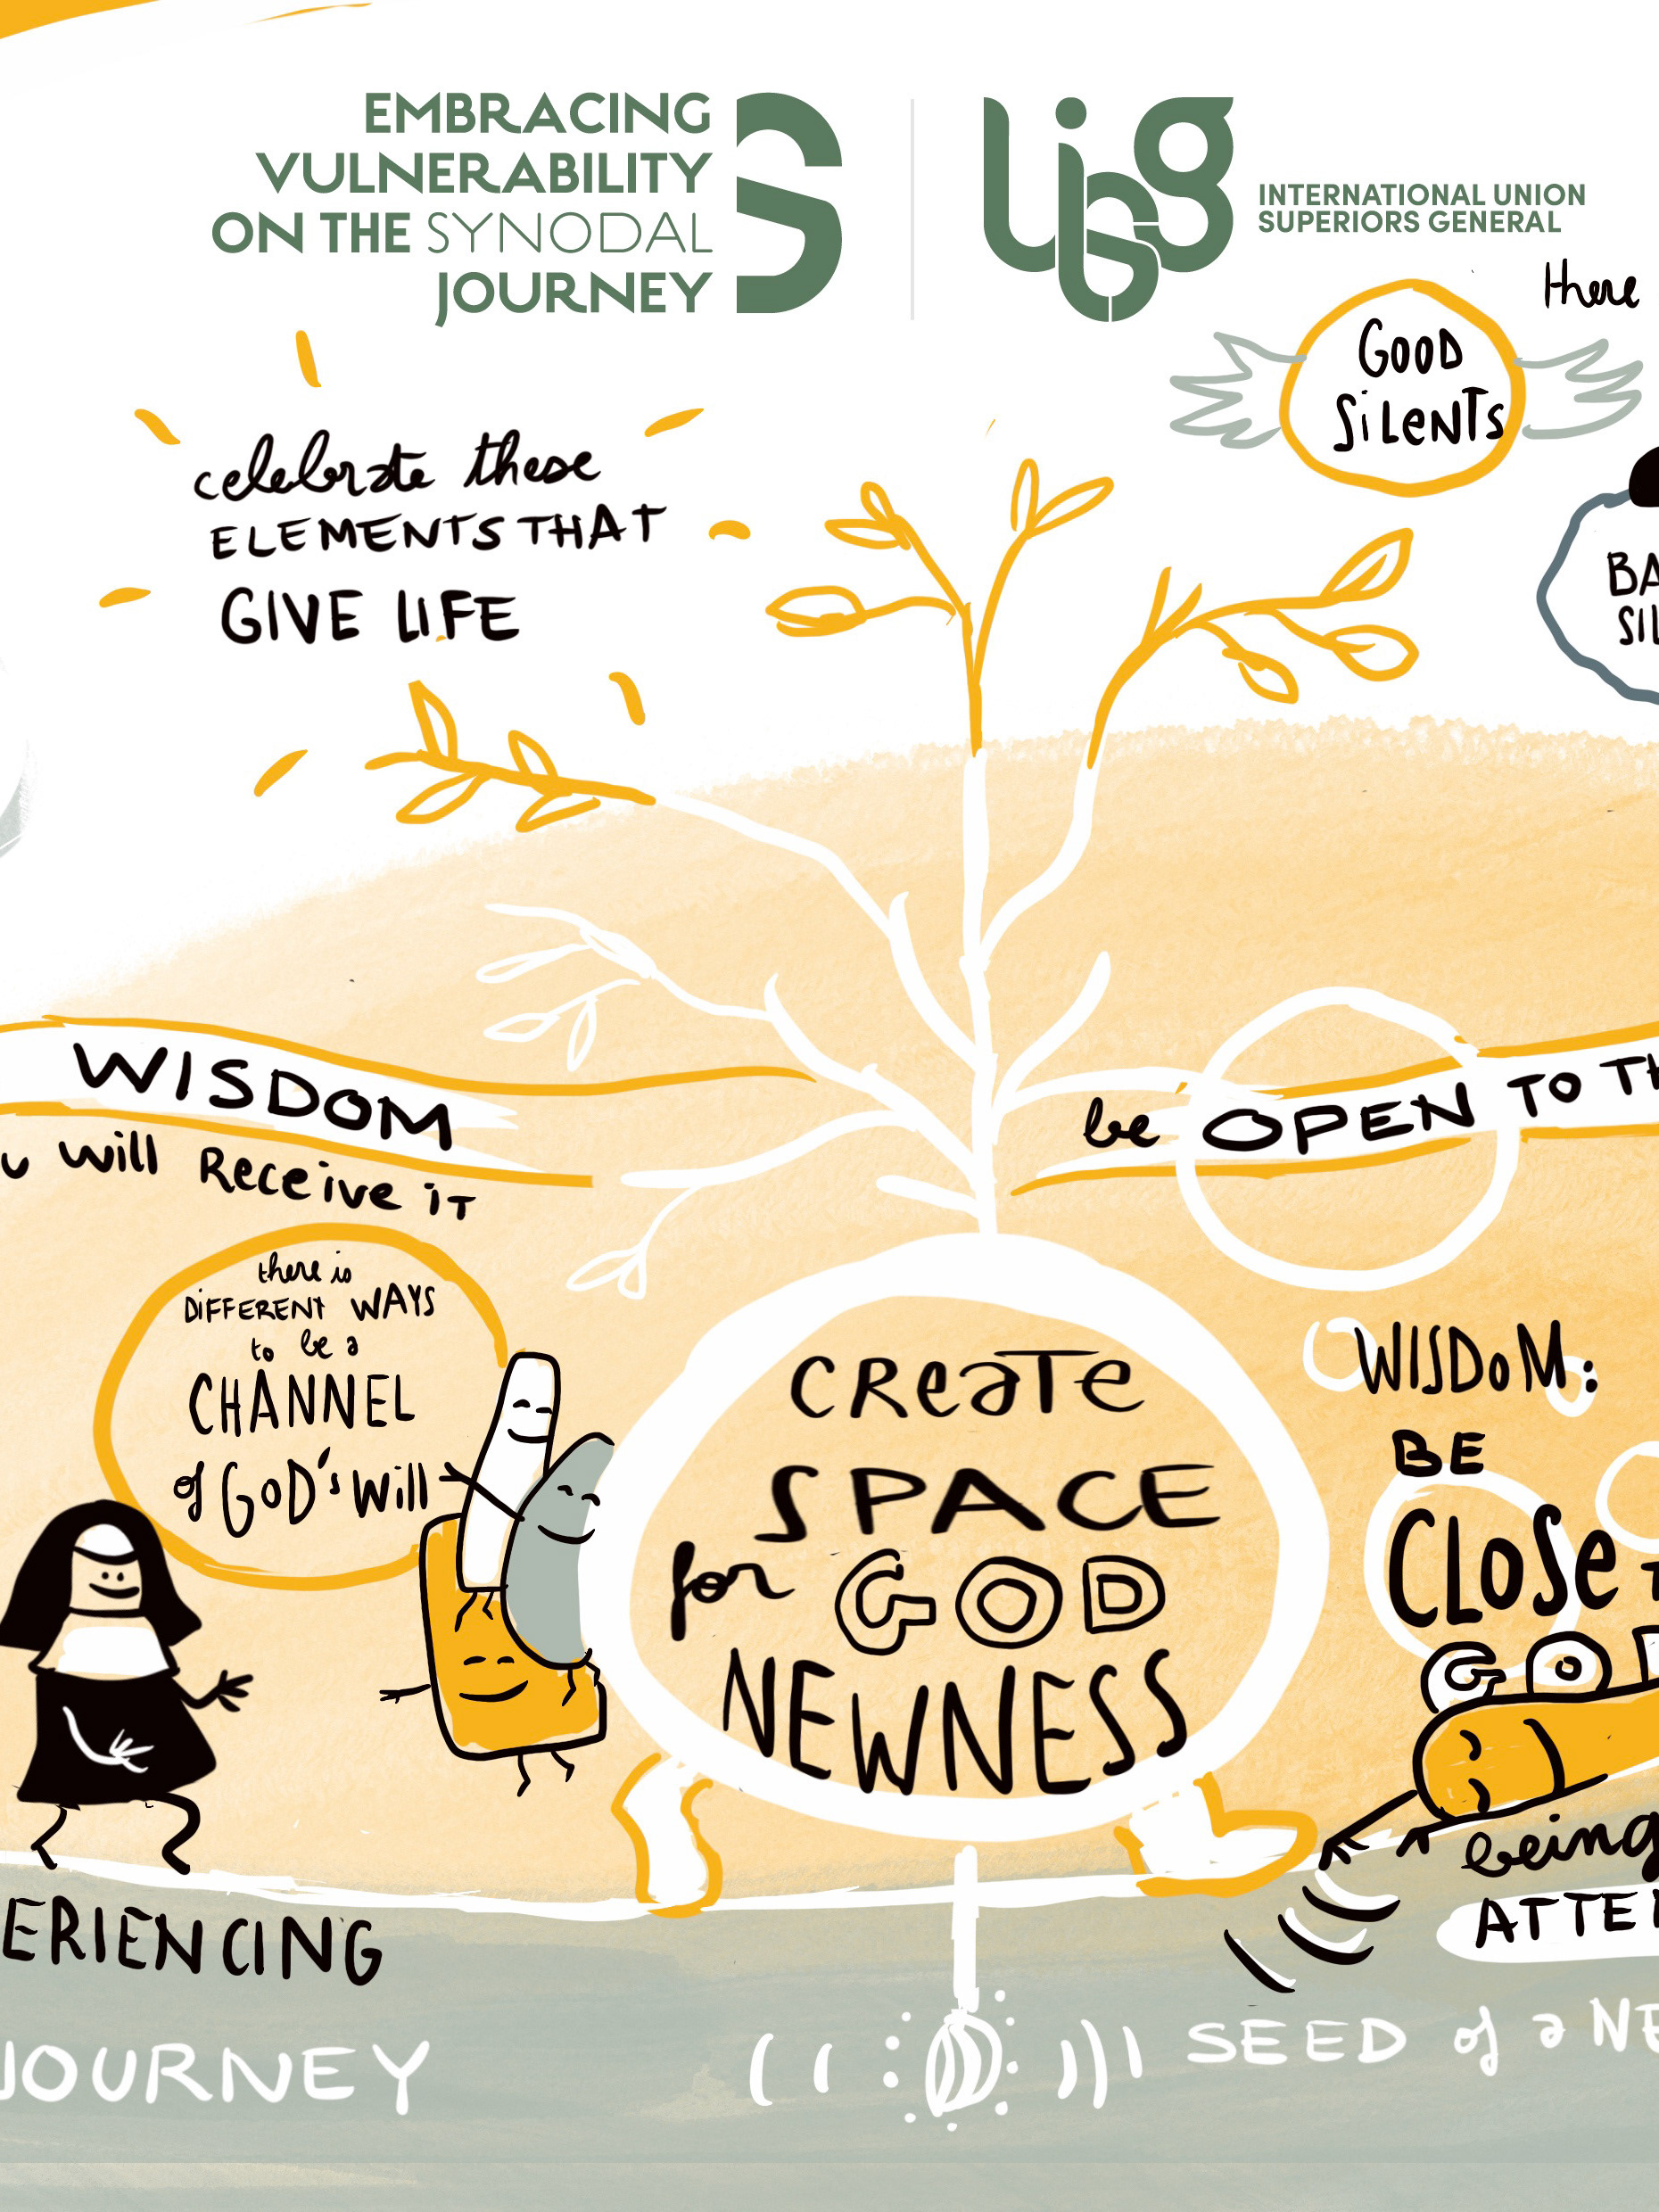 EMBRACING
VULNERABILITY
ON THE SYNODAL
JOURNEY
S
uisg
INTERNATIONAL UNION
SUPERIORS GENERAL
there
GOOD
SiLeNTS
celebrate these
ELEMENTS THAT
GIVE LIFE
WISDOM
will Receive iT
be OPEN TO
there is
DiFFERENT WAYS
to be a
CHANNEL
of GOD's will
CReaTe
SPACE
for GOD
NEWNESS
WISDoM:
BE
CLoSe
GOD
being
ERIENCING
JOURNEY
SEED of a